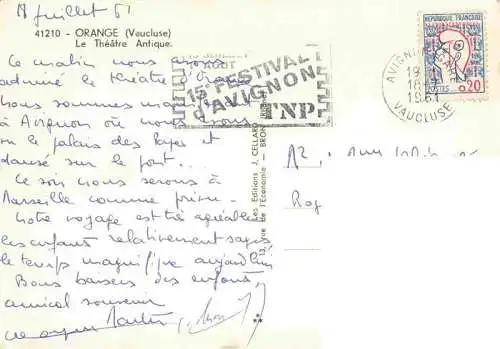 18 Juillet 61
41210 - ORANGE (Vaucluse)
Le Théâtre Antique.
Ce matin nous avons
admiré le théâtre d'Orange
nous sommes
à Avignon où nous
le palais des Papes et
dansé sur le pont...
Ce soir nous serons à
Marseille comme prévu.
Notre voyage est très agréable
les enfants relativement sages
le temps magnifique aujourd'hui
Bons baisers des enfants
amical souvenir
15e FESTIVAL
d'AVIGNON
TNP
AVIGNON
18
1961
VAUCLUSE
REPUBLIQUE FRANÇAISE
POSTES 0,20
Les Editions J. CELLARD
rue de l'Economie - BRON
12,